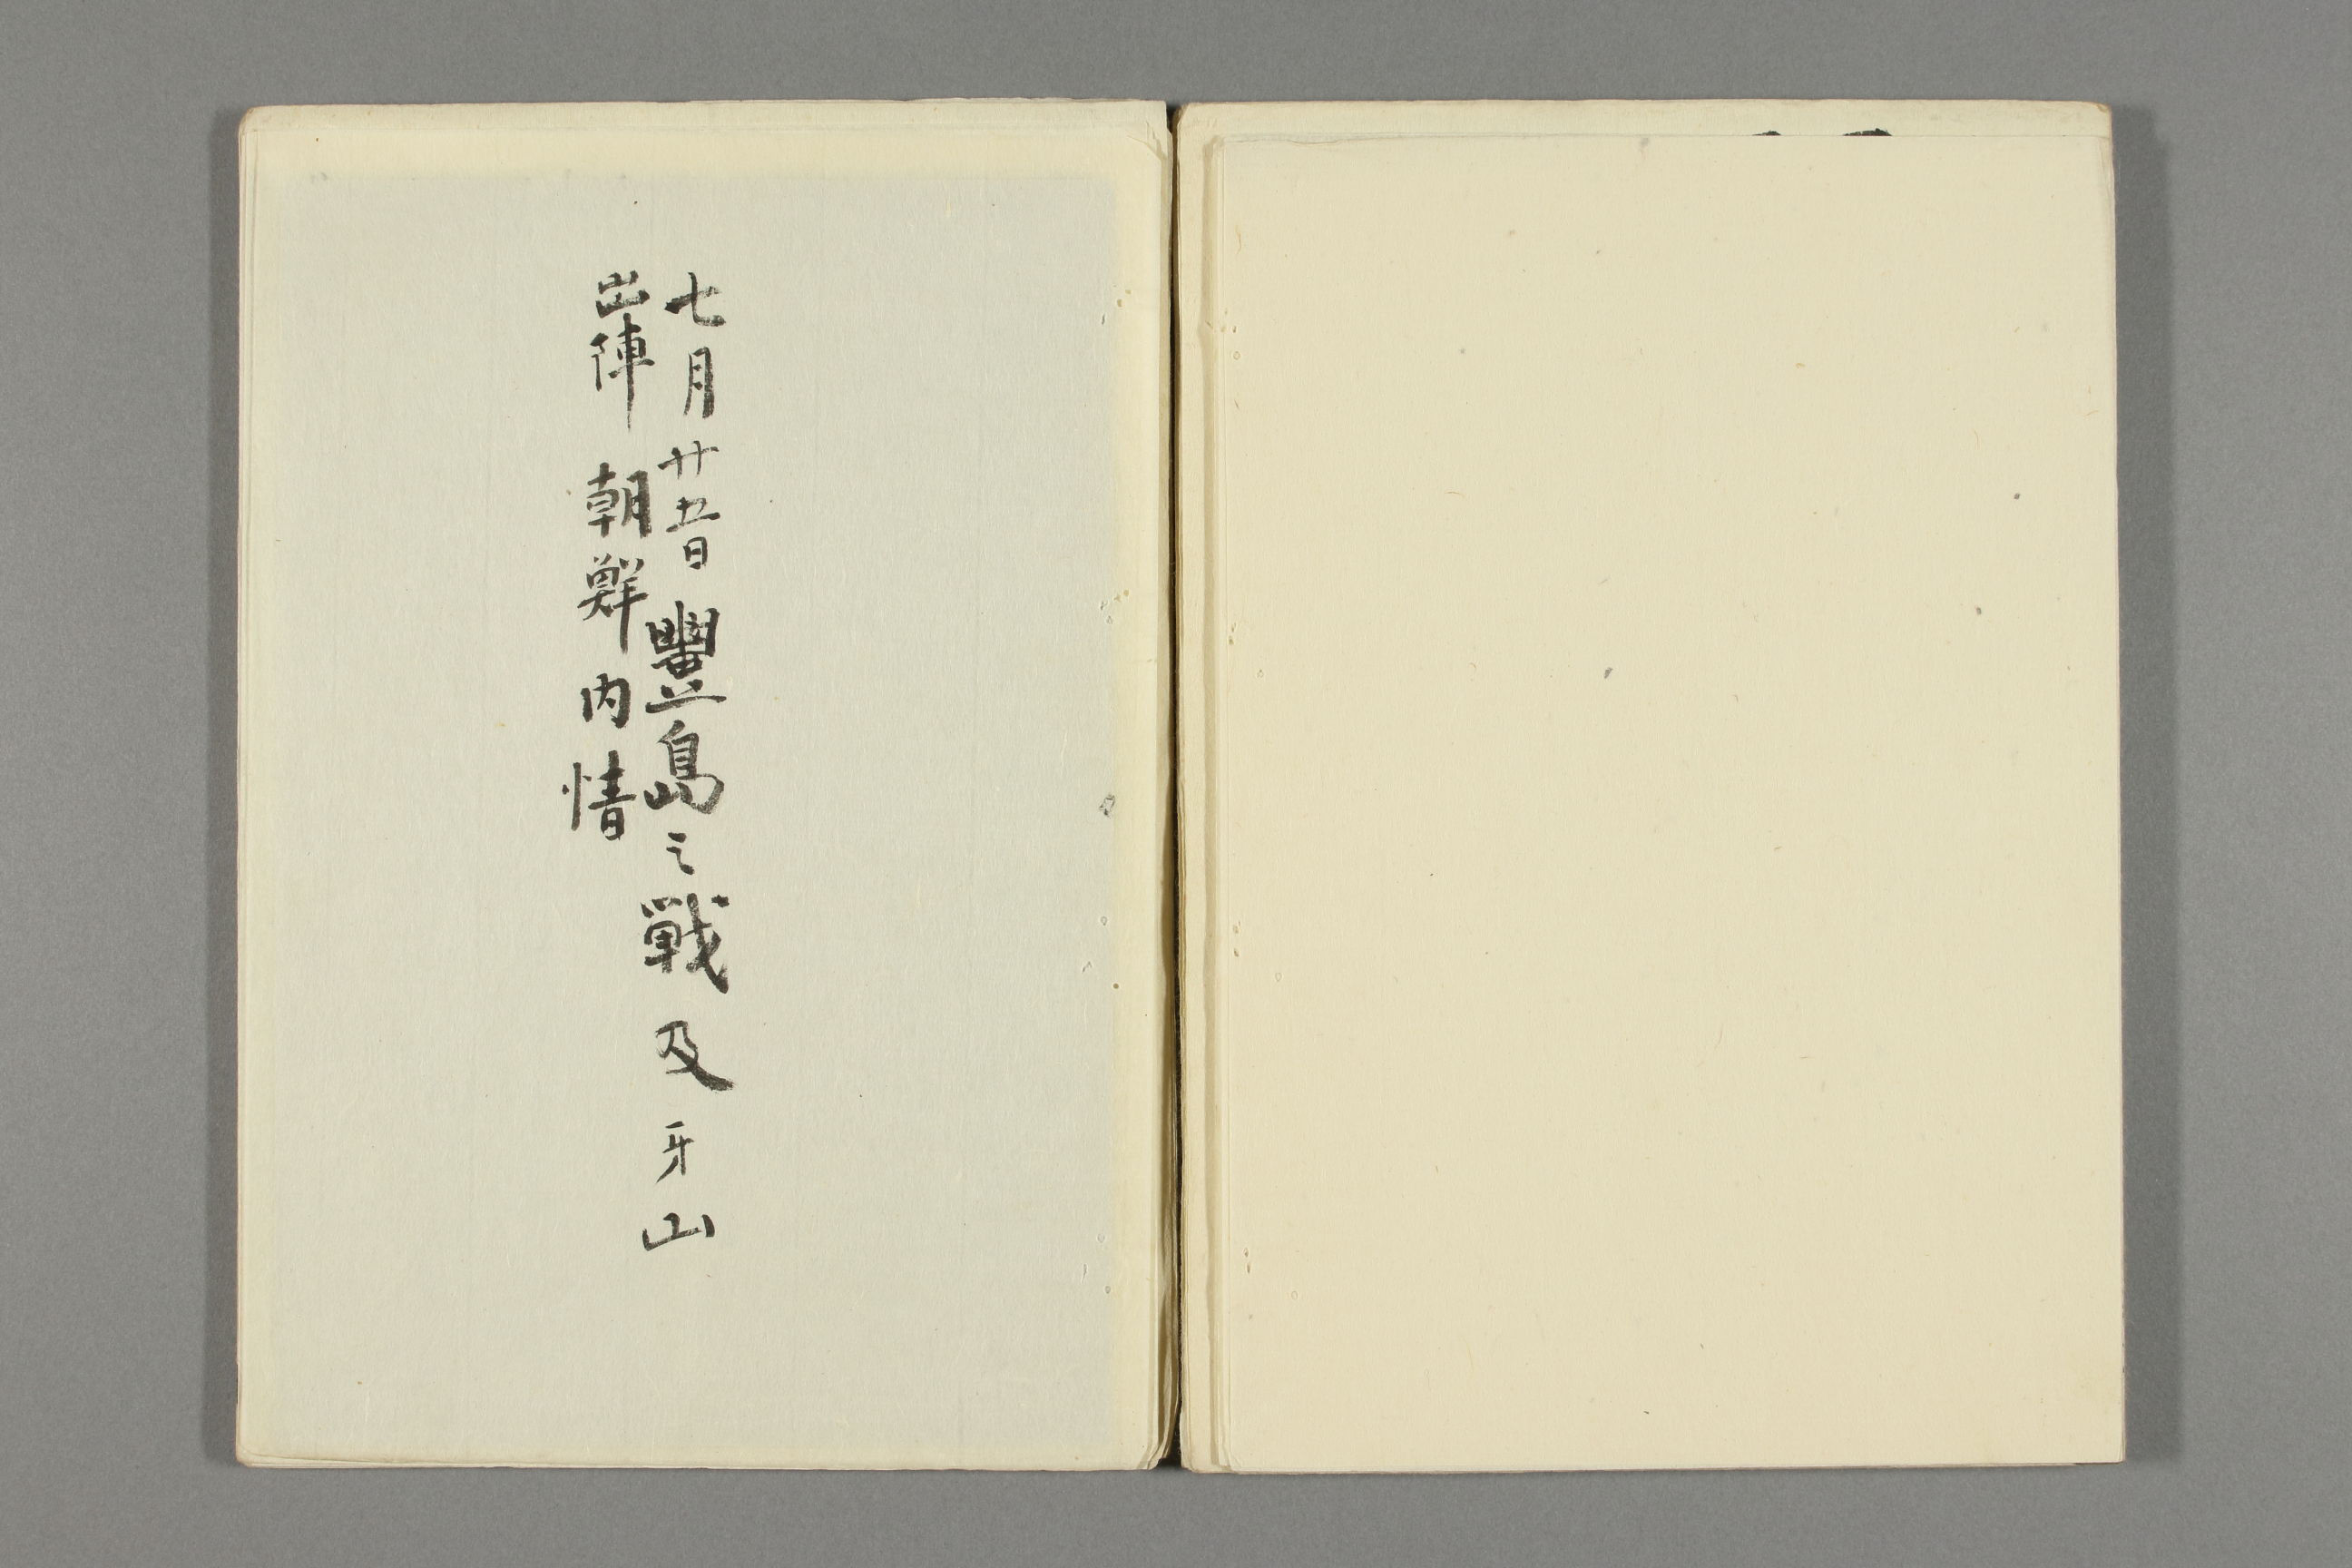 七月廿五日豐島之戦及牙山
出陣朝鮮内情